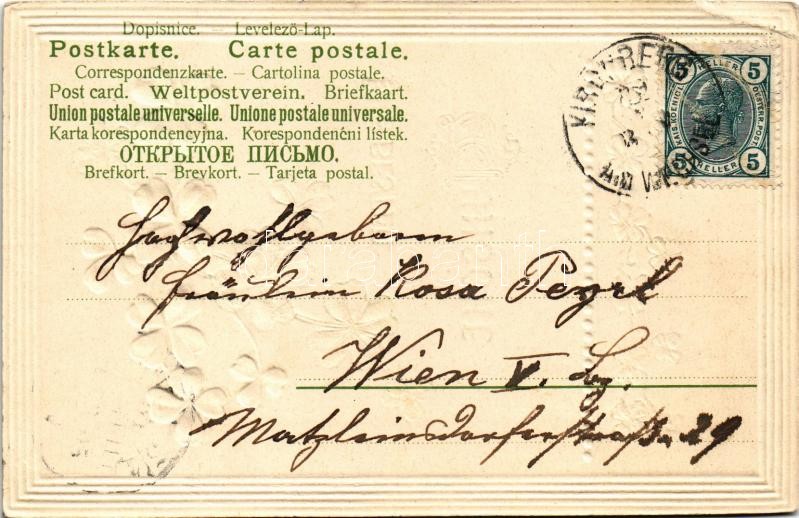 Dopisnice. — Levelező-Lap.
Postkarte. Carte postale.
Correspondenzkarte. — Cartolina postale.
Post card. Weltpostverein. Briefkaart.
Union postale universelle. Unione postale universale.
Karta korespondencyjna. Korespondenčni listek.
ОТКРЫТОЕ ПИСЬМО.
Brefkort. — Brevkort. — Tarjeta postal.
5 HELLER 5
KAIS. KOENIGL. ÖSTERR. POST.
5 HELLER 5
KIRCHBERG
AM
Hochwohlgeboren
Fräulein Rosa Peyrl
Wien V. Bz.
Matzleinsdorferstraße 29